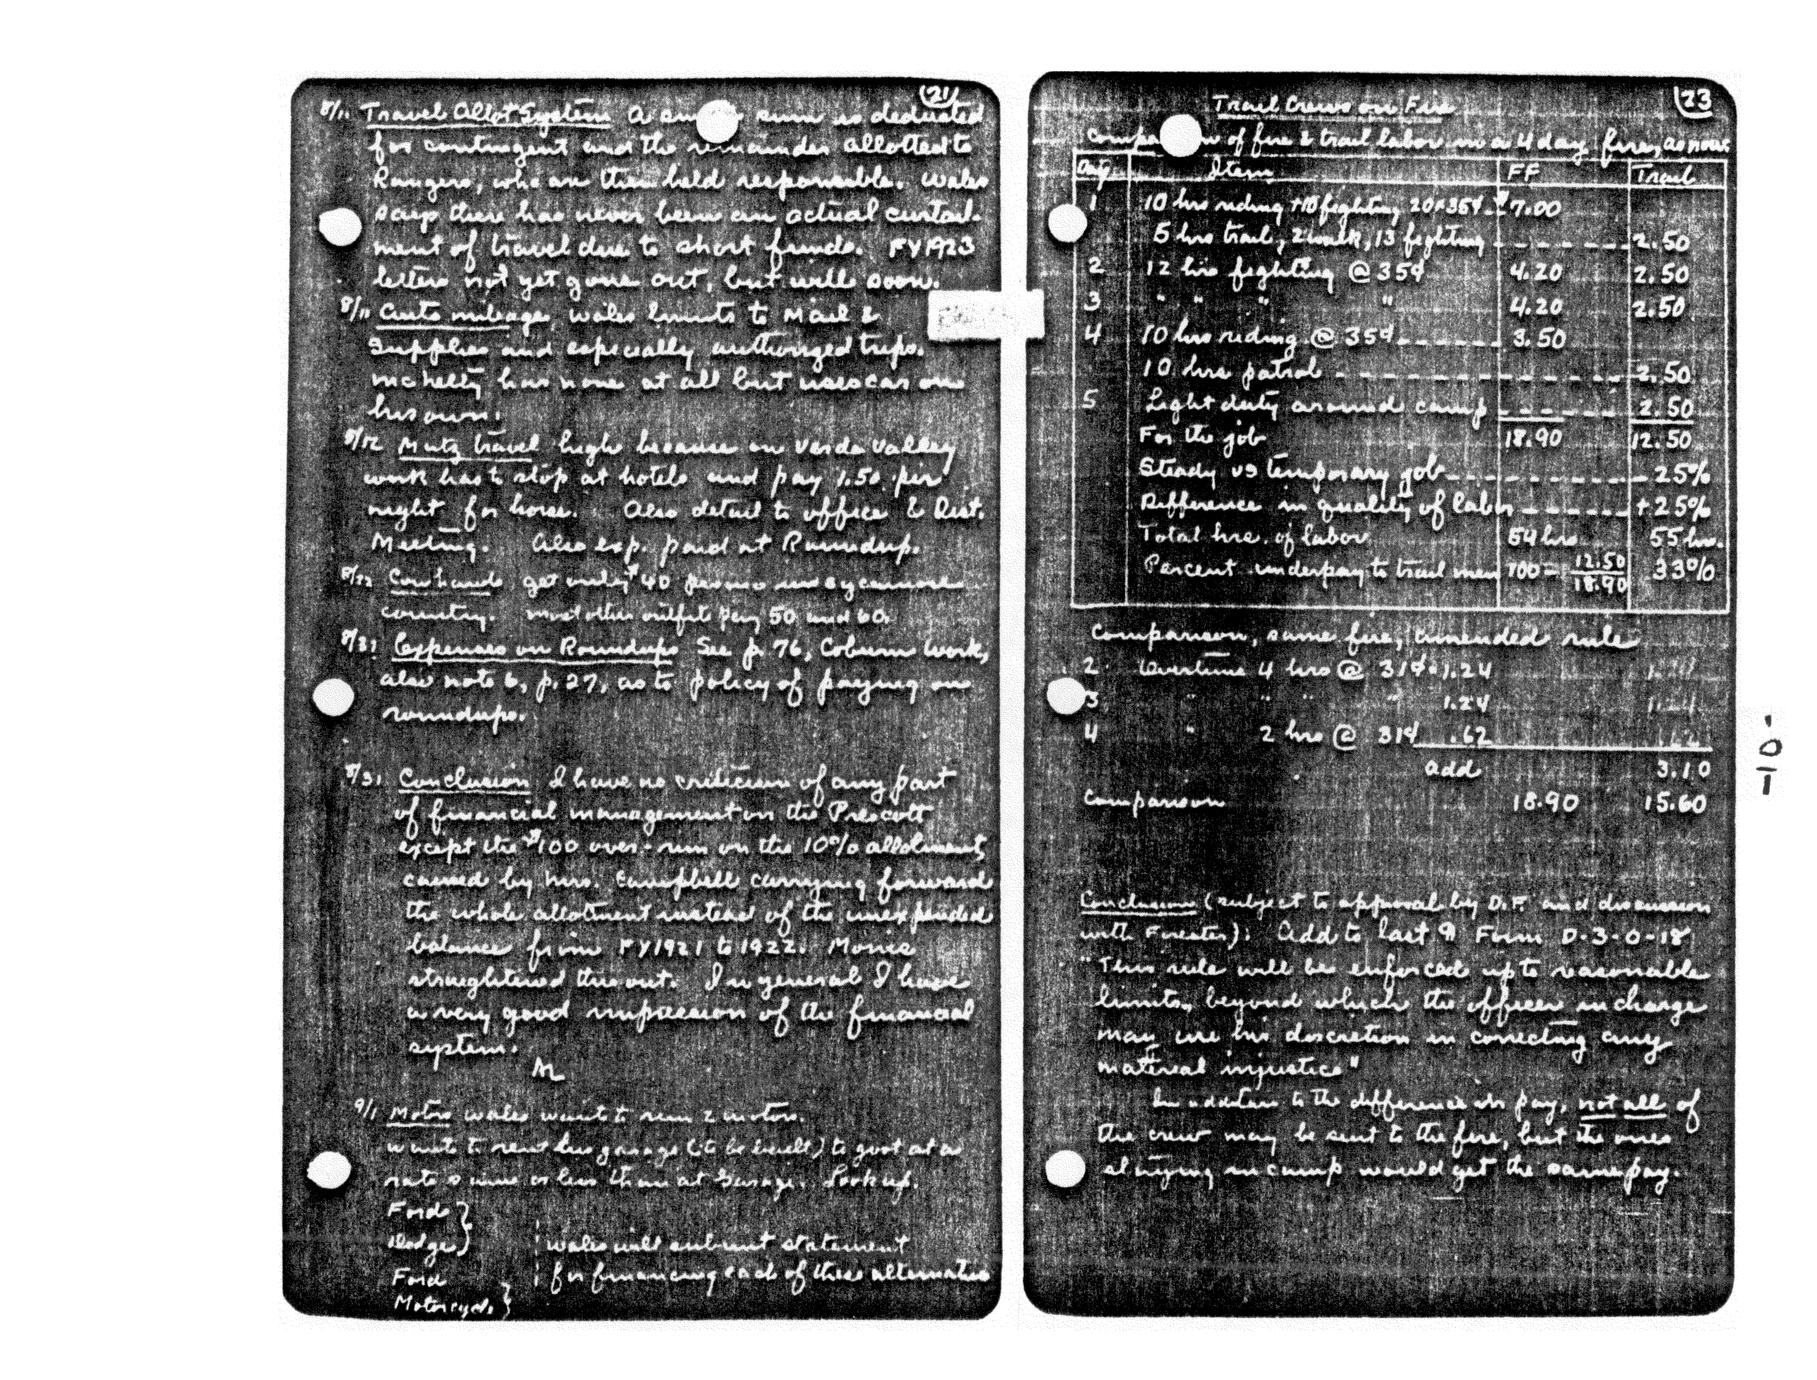 21
8/11 Travel Allot System A sum is deducted
for contingent and the remainder allotted to
Rangers, who are then held responsible. Wales
says there has never been an actual curtail-
ment of travel due to short funds. FY1923
letters not yet gone out, but will soon.
8/11 Auto mileage, Wales limits to Mail &
Supplies and especially authorized trips.
McNelty has none at all but uses car on
his own.
8/12 Mutz travel high because on Verde Valley
work has to stop at hotels and pay 1.50 per
night for horse. Also detail to office & Dist.
Meeting. Also exp. paid at Roundup.
8/22 Cowhands get only $40 per mo in Sycamore
country. Most other outfits pay 50 and 60.
8/31 Expenses on Roundup See p. 76, Coburn work,
also note 6, p. 27, as to policy of paying on
roundups.
8/31 Conclusion I have no criticism of any part
of financial management on the Prescott
except the $100 over-run on the 10% allotment,
caused by Mrs. Campbell carrying forward
the whole allotment instead of the unexpended
balance from FY1921 to 1922. Morris
straightened this out. In general I have
a very good impression of the financial
system.
AL
9/1 Motors Wales wants to run 2 motors.
Wants to rent his garage (to be built) to govt at a
rate same or less than at Garage. Look up.
Ford }
Dodge }
Wales will submit statement
Ford
for financing each of these alternatives
Motorcycle }
23
Trail Crews on Fire
Comparison of fire & trail labor on a 4 day fire, as now.
Day Item FF Trail
1 10 hrs riding + 10 fighting 20 x 35¢ $7.00
5 hrs trail, 2 walk, 13 fighting 2.50
2 12 hrs fighting @ 35¢ 4.20 2.50
3 " " " " 4.20 2.50
4 10 hrs riding @ 35¢ 3.50
10 hrs patrol 2.50
5 Light duty around camp 2.50
For the job 18.90 12.50
Steady vs temporary job - 25%
Difference in quality of labor + 25%
Total hrs. of labor 54 hrs 55 hrs.
Percent underpay to trail men 100 - 12.50/18.90 33%
Comparison, same fire, amended rule
2 Overtime 4 hrs @ 31¢ 1.24
3 " " " " 1.24
4 " 2 hrs @ 31¢ .62
add 3.10
Comparison 18.90 15.60
Conclusion (subject to approval by D.F. and discussion
with Forester): Add to last ¶ Form D-3-0-18
"This rule will be enforced up to reasonable
limits, beyond which the officer in charge
may use his discretion in correcting any
material injustice"
In addition to the difference in pay, not all of
the crew may be sent to the fire, but the ones
staying in camp would get the same pay.